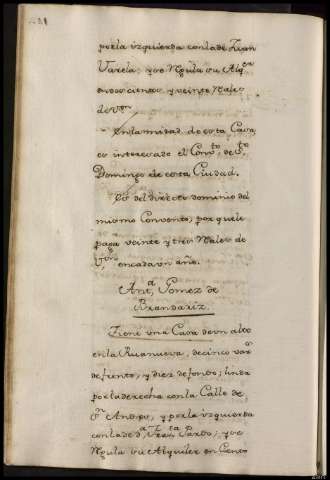 por la izquierda con la de Juan
Varela; y se Rgula su Alqr
a doscientos y veinte Rales
de Von
En la mitad de esta Casa
es interesado el Convto de Sto
Domingo de esta Ciudad.
Es del directo dominio del
mismo Convento, por que le
paga veinte y tres Rales de
Von en cada un año.
Anta Gomez de
Brandariz.
Tiene una Casa de un alto
en la Ruanueva, de cinco vars
de frente, y diez de fondo; linda
por la derecha con la Calle de
Sn Andres, y por la izquierda
con la de Pardo; y se
Rgula su Alquiler en Cento